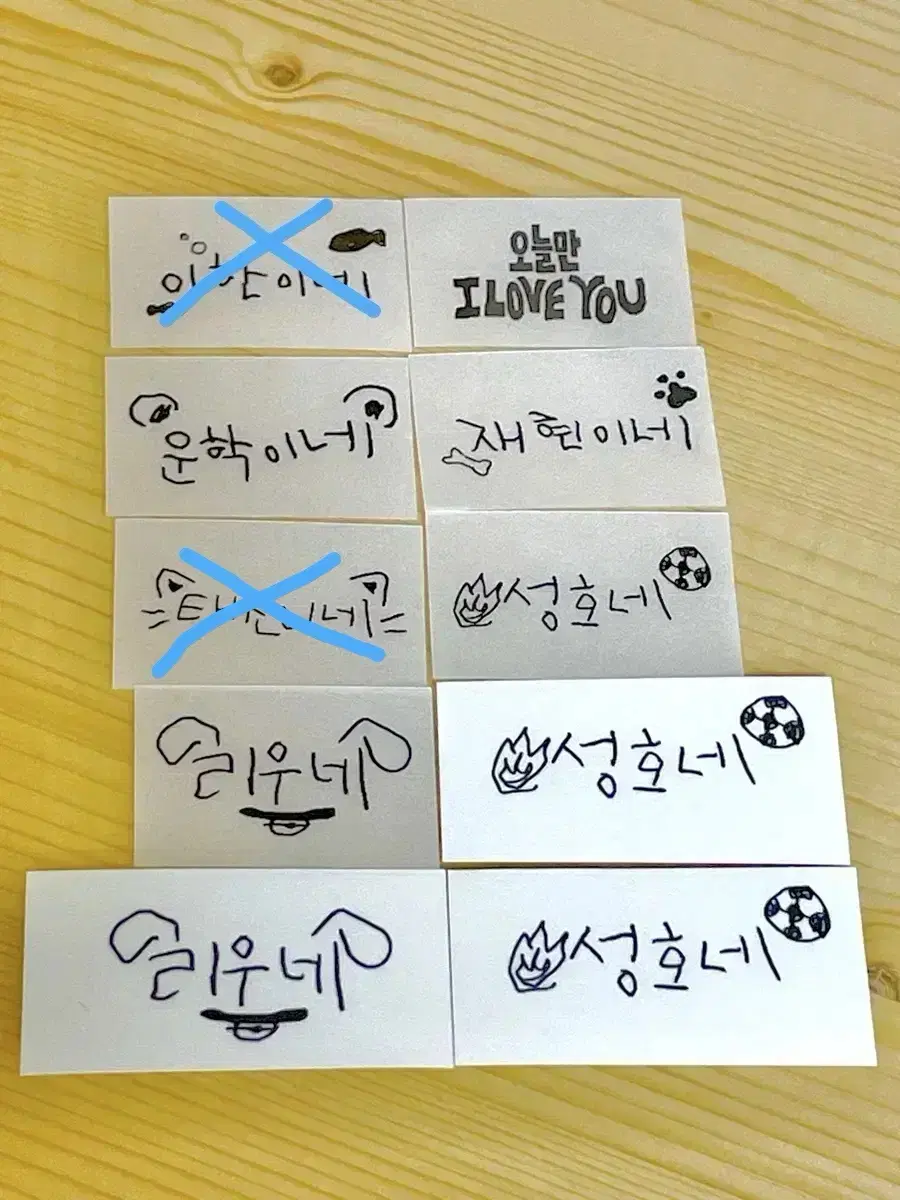 이한이네
오늘만
I LOVE YOU
운학이네
재현이네
성호네
리우네
성호네
리우네
성호네